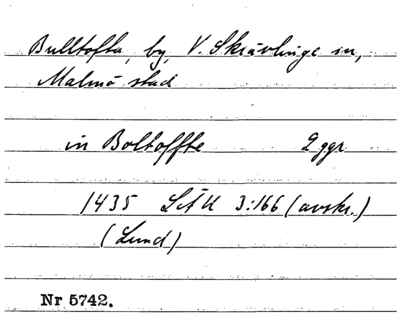 Bulltofta, by, V. Skrävlinge sn,
Malmö stad
in Boltoffte 2 ggr
1435 LÄU 3:166 (avskr.)
(Lund)
Nr 5742.